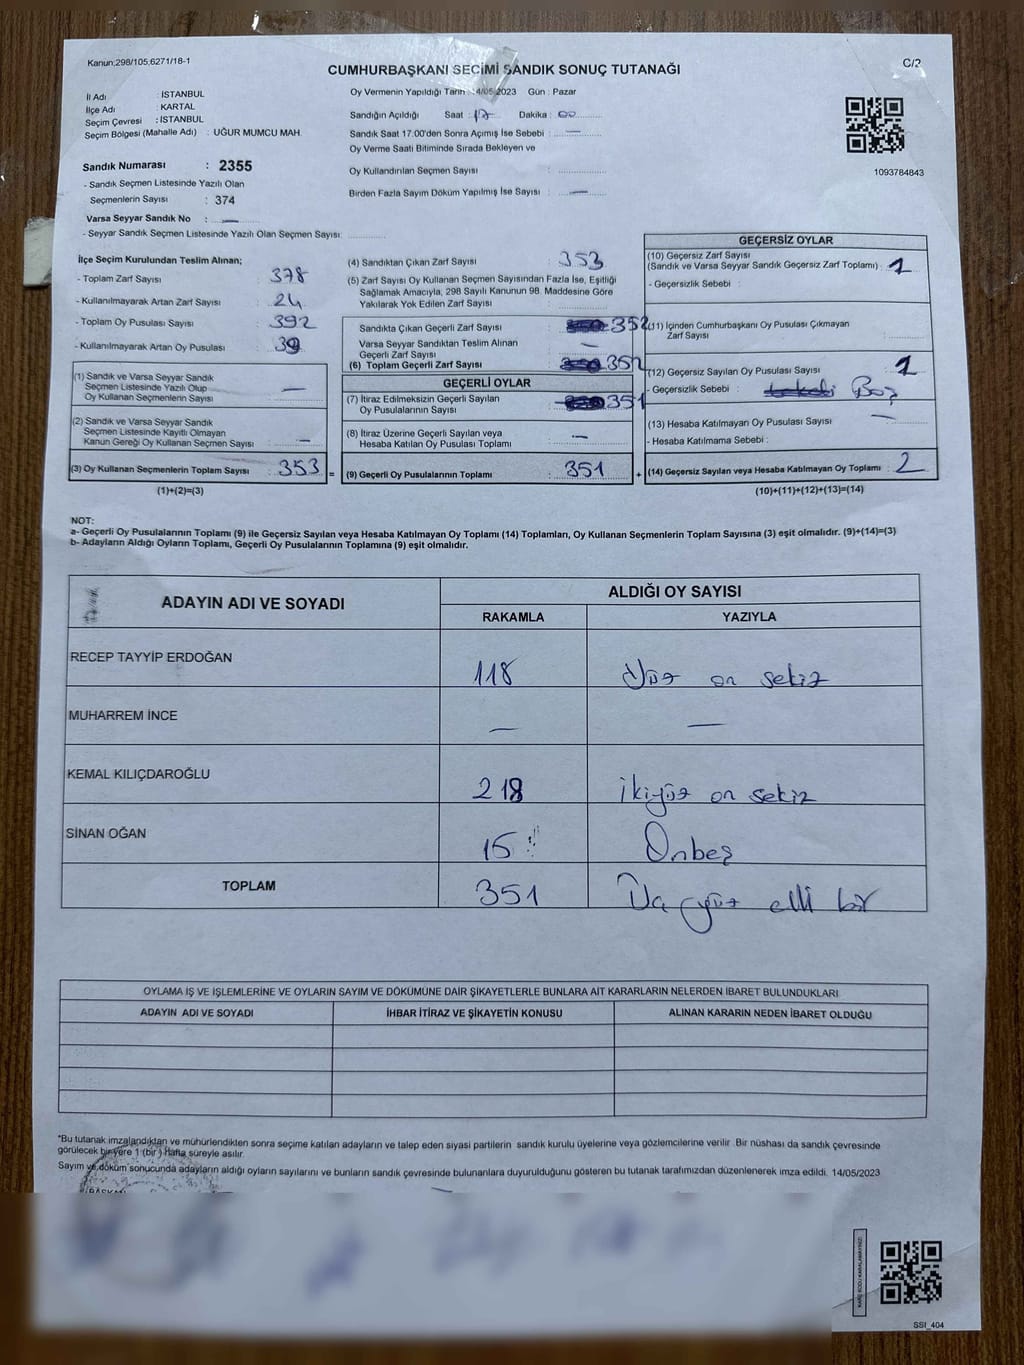 Kanun;298/105;6271/18-1
C/2
CUMHURBAŞKANI SEÇİMİ SANDIK SONUÇ TUTANAĞI
İl Adı : İSTANBUL
İlçe Adı : KARTAL
Seçim Çevresi : İSTANBUL
Seçim Bölgesi (Mahalle Adı) : UĞUR MUMCU MAH.
Sandık Numarası : 2355
- Sandık Seçmen Listesinde Yazılı Olan
Seçmenlerin Sayısı : 374
Varsa Seyyar Sandık No : —
- Seyyar Sandık Seçmen Listesinde Yazılı Olan Seçmen Sayısı:
Oy Vermenin Yapıldığı Tarih : 4/05/2023 Gün : Pazar
Sandığın Açıldığı Saat : 17 Dakika : 00
Sandık Saat 17.00'den Sonra Açımış İse Sebebi : —
Oy Verme Saati Bitiminde Sırada Bekleyen ve
Oy Kullandırılan Seçmen Sayısı :
Birden Fazla Sayım Döküm Yapılmış İse Sayısı : —
1093784843
İlçe Seçim Kurulundan Teslim Alınan;
- Toplam Zarf Sayısı : 378
- Kullanılmayarak Artan Zarf Sayısı : 24
- Toplam Oy Pusulası Sayısı : 392
- Kullanılmayarak Artan Oy Pusulası : 39
(1) Sandık ve Varsa Seyyar Sandık
Seçmen Listesinde Yazılı Olup
Oy Kullanan Seçmenlerin Sayısı : —
(2) Sandık ve Varsa Seyyar Sandık
Seçmen Listesinde Kayıtlı Olmayan
Kanun Gereği Oy Kullanan Seçmen Sayısı : —
(3) Oy Kullanan Seçmenlerin Toplam Sayısı : 353
(1)+(2)=(3)
(4) Sandıktan Çıkan Zarf Sayısı : 353
(5) Zarf Sayısı Oy Kullanan Seçmen Sayısından Fazla İse, Eşitliği
Sağlamak Amacıyla, 298 Sayılı Kanunun 98. Maddesine Göre
Yakılarak Yok Edilen Zarf Sayısı :
Sandıkta Çıkan Geçerli Zarf Sayısı : 352
Varsa Seyyar Sandıktan Teslim Alınan
Geçerli Zarf Sayısı : —
(6) Toplam Geçerli Zarf Sayısı : 352
GEÇERLİ OYLAR
(7) İtiraz Edilmeksizin Geçerli Sayılan
Oy Pusulalarının Sayısı : 351
(8) İtiraz Üzerine Geçerli Sayılan veya
Hesaba Katılan Oy Pusulası Toplamı : —
= (9) Geçerli Oy Pusulalarının Toplamı : 351
GEÇERSİZ OYLAR
(10) Geçersiz Zarf Sayısı
(Sandık ve Varsa Seyyar Sandık Geçersiz Zarf Toplamı) : 1
- Geçersizlik Sebebi :
(11) İçinden Cumhurbaşkanı Oy Pusulası Çıkmayan
Zarf Sayısı :
(12) Geçersiz Sayılan Oy Pusulası Sayısı : 1
- Geçersizlik Sebebi : Boş
(13) Hesaba Katılmayan Oy Pusulası Sayısı : —
- Hesaba Katılmama Sebebi :
+ (14) Geçersiz Sayılan veya Hesaba Katılmayan Oy Toplamı : 2
(10)+(11)+(12)+(13)=(14)
NOT:
a- Geçerli Oy Pusulalarının Toplamı (9) ile Geçersiz Sayılan veya Hesaba Katılmayan Oy Toplamı (14) Toplamları, Oy Kullanan Seçmenlerin Toplam Sayısına (3) eşit olmalıdır. (9)+(14)=(3)
b- Adayların Aldığı Oyların Toplamı, Geçerli Oy Pusulalarının Toplamına (9) eşit olmalıdır.
ADAYIN ADI VE SOYADI ALDIĞI OY SAYISI
RAKAMLA YAZIYLA
RECEP TAYYİP ERDOĞAN 118 Yüz on sekiz
MUHARREM İNCE — —
KEMAL KILIÇDAROĞLU 218 ikiyüz on sekiz
SİNAN OĞAN 15 Onbeş
TOPLAM 351 Üç yüz elli bir
OYLAMA İŞ VE İŞLEMLERİNE VE OYLARIN SAYIM VE DÖKÜMÜNE DAİR ŞİKAYETLERLE BUNLARA AİT KARARLARIN NELERDEN İBARET BULUNDUKLARI
ADAYIN ADI VE SOYADI İHBAR İTİRAZ VE ŞİKAYETİN KONUSU ALINAN KARARIN NEDEN İBARET OLDUĞU
*Bu tutanak imzalandıktan ve mühürlendikten sonra seçime katılan adayların ve talep eden siyasi partilerin sandık kurulu üyelerine veya gözlemcilerine verilir .Bir nüshası da sandık çevresinde
görülecek bir yere 1 (bir ) Hafta süreyle asılır.
Sayım ve döküm sonucunda adayların aldığı oyların sayılarını ve bunların sandık çevresinde bulunanlara duyurulduğunu gösteren bu tutanak tarafımızdan düzenlenerek imza edildi. 14/05/2023
BAŞKAN
KARE KODU KARALAMAYINIZ!
SSI_404